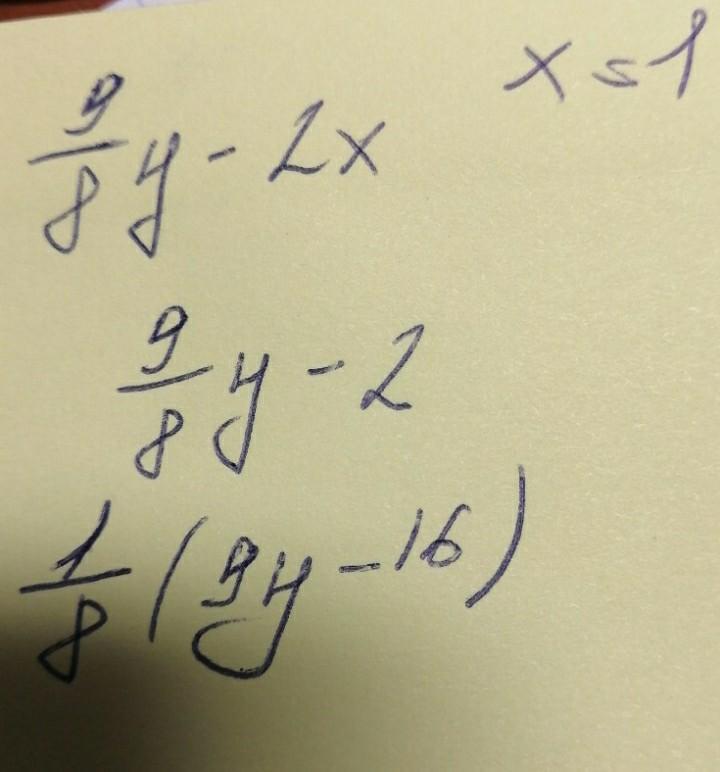 x = 1
9/8 y - 2x
9/8 y - 2
1/8 (9y - 16)